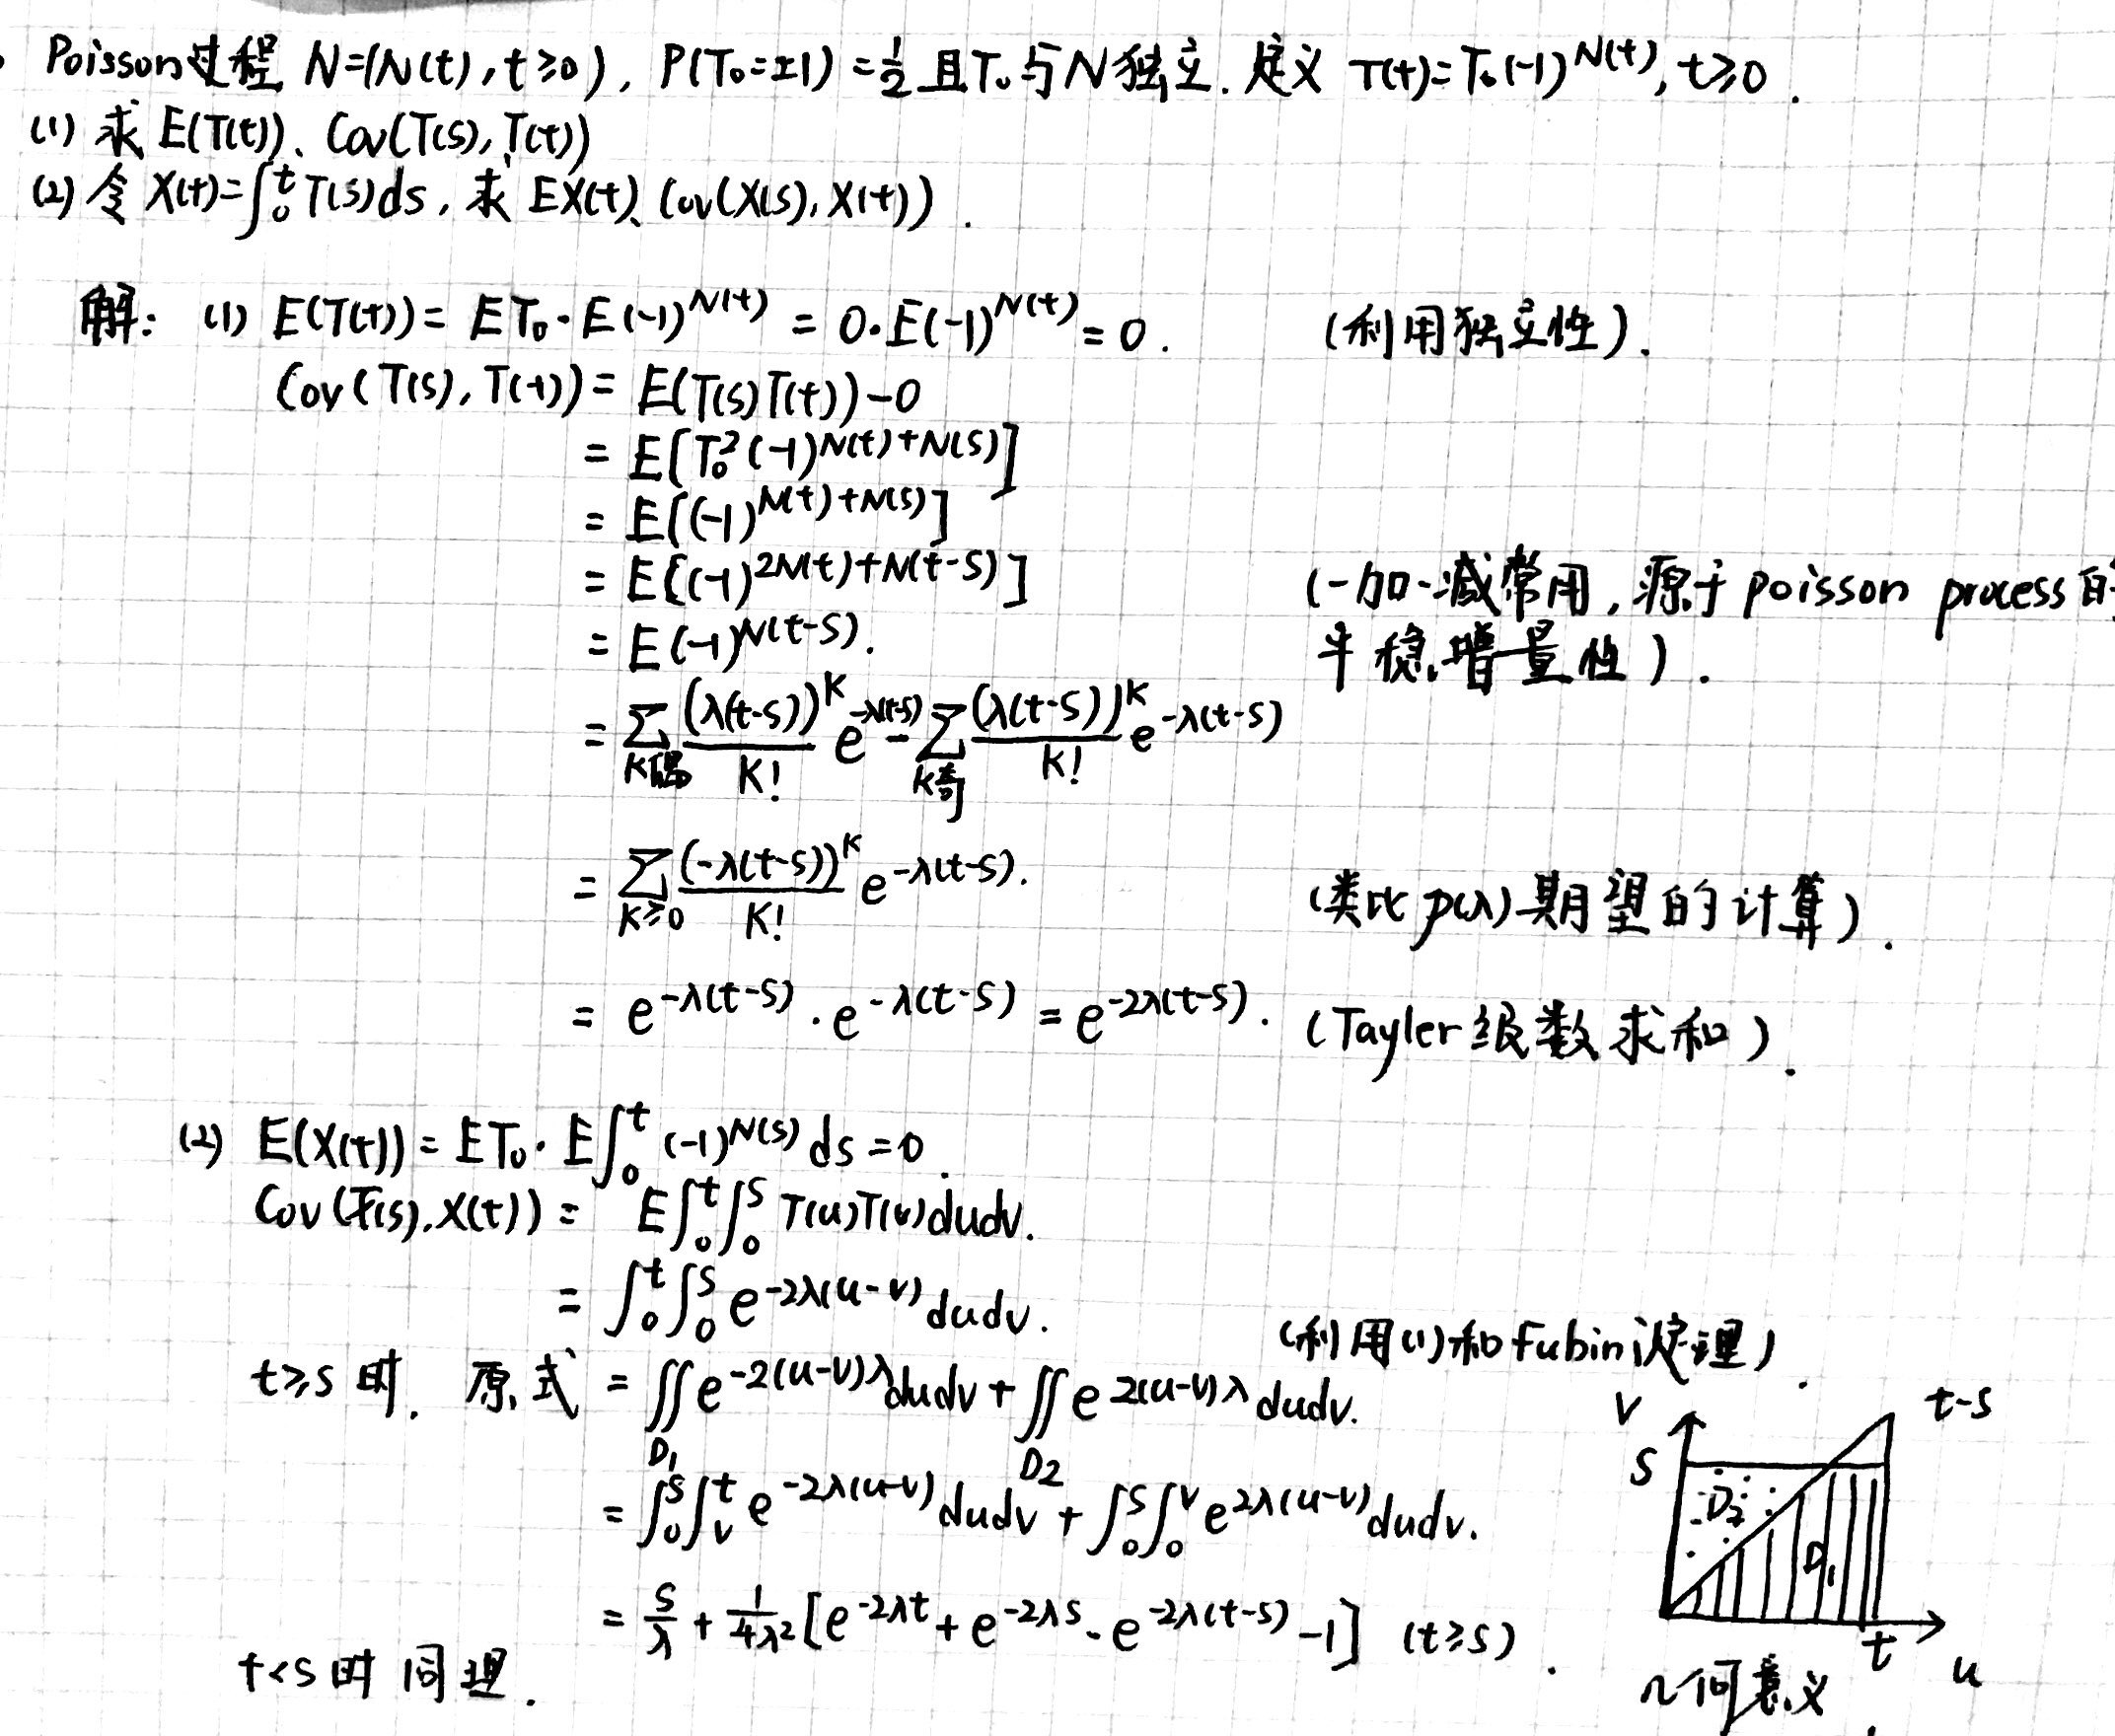 Poisson过程 N=(N(t),t≥0), P(T₀=±1)=1/2 且T₀与N独立. 定义 T(t)=T₀(-1)^{N(t)}, t≥0.
(1) 求 E(T(t))、Cov(T(s),T(t))
(2) 令 X(t)=∫₀ᵗT(s)ds, 求 EX(t)、Cov(X(s),X(t)).
解: (1) E(T(t))= ET₀·E(-1)^{N(t)} = 0·E(-1)^{N(t)}=0. (利用独立性).
Cov(T(s),T(t))= E(T(s)T(t))-0
= E[T₀²(-1)^{N(t)+N(s)}]
= E[(-1)^{N(t)+N(s)}]
= E[(-1)^{2N(t)+N(t-s)}] (一加一减常用,源于poisson process的
= E(-1)^{N(t-s)}. 平稳增量性).
= Σ_{k偶} (λ(t-s))^k/k! e^{-λ(t-s)} - Σ_{k奇} (λ(t-s))^k/k! e^{-λ(t-s)}
= Σ_{k≥0} (-λ(t-s))^k/k! e^{-λ(t-s)}. (类比p(λ)期望的计算).
= e^{-λ(t-s)}·e^{-λ(t-s)} = e^{-2λ(t-s)}. (Tayler级数求和).
(2) E(X(t))= ET₀·E∫₀ᵗ(-1)^{N(s)}ds=0.
Cov(X(s),X(t))= E∫₀ᵗ∫₀ˢ T(u)T(v)dudv.
= ∫₀ᵗ∫₀ˢ e^{-2λ(u-v)}dudv. (利用(1)和Fubini定理).
t≥s时. 原式 = ∬_{D₁} e^{-2(u-v)λ}dudv + ∬_{D2} e^{2(u-v)λ}dudv.
= ∫₀ˢ∫ᵥᵗ e^{-2λ(u-v)}dudv + ∫₀ˢ∫₀ᵛ e^{2λ(u-v)}dudv.
= s/λ + 1/4λ²[e^{-2λt}+e^{-2λs}-e^{-2λ(t-s)}-1] (t≥s).
t<s时 同理.
V
t-s
S
D₂
D₁
t
u
几何意义